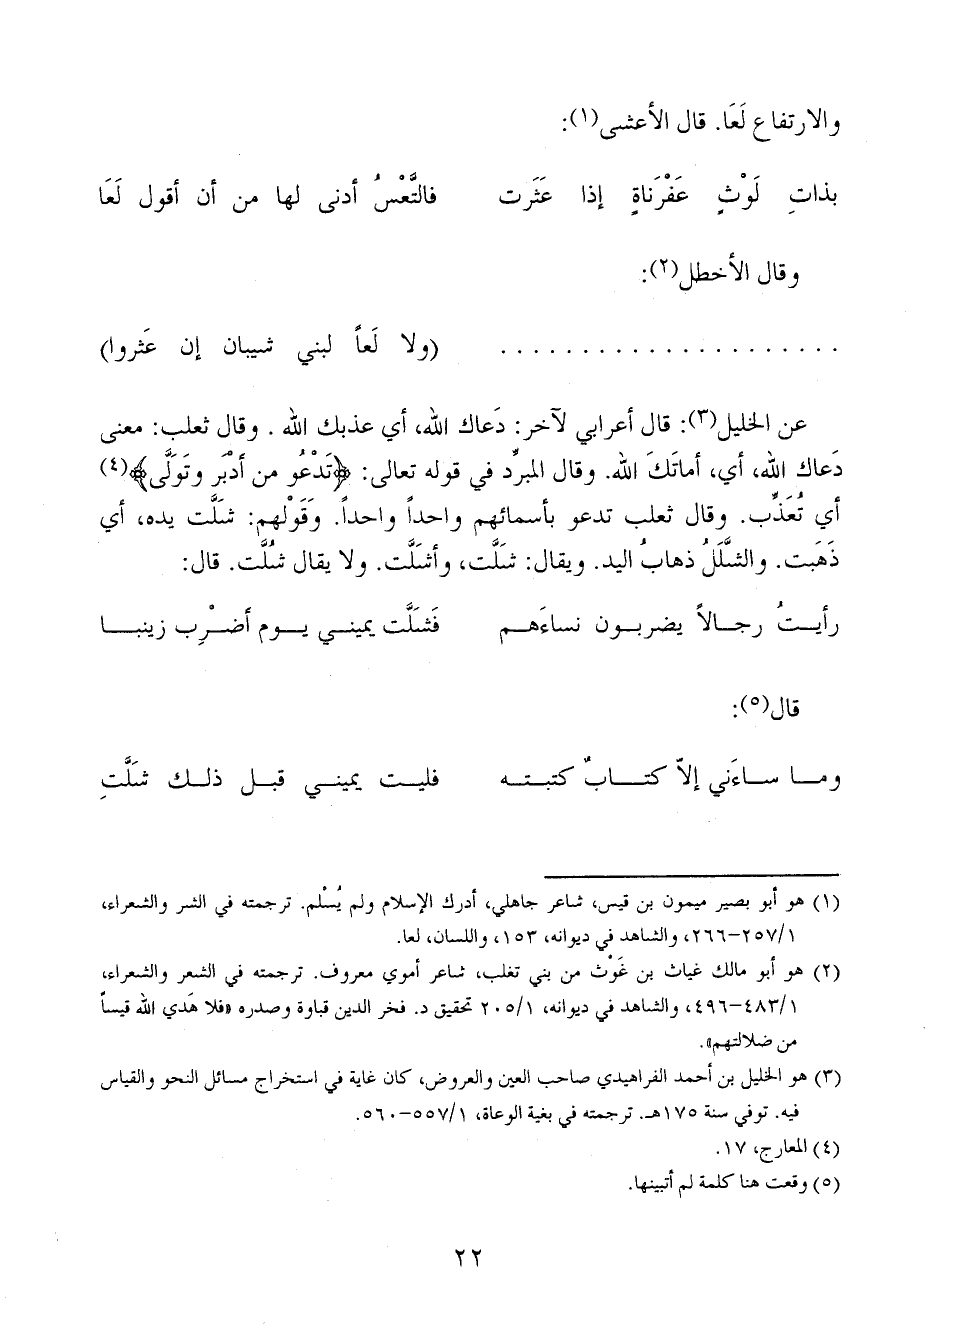 والارتفاع لَعَا. قال الأعشى(١):
بذاتِ لَوْثٍ عَفَرْناةٍ إذا عَثَرت فالتَّعْسُ أدنى لها من أن أقول لَعَا
وقال الأخطل(٢):
..................... (ولا لَعاً لبني شيبان إن عَثروا)
عن الخليل(٣): قال أعرابي لآخر: دَعاك الله، أي عذبك الله. وقال ثعلب: معنى
دَعاك الله، أي، أماتَكَ الله. وقال المبرِّد في قوله تعالى: ﴿تَدْعُو من أدْبَر وتَولَّى﴾(٤)
أي تُعَذِّب. وقال ثعلب تدعو بأسمائهم واحداً واحداً. وَقَوْلهم: شلَّت يده، أي
ذَهَبَت. والشَّلَلُ ذهابُ اليد. ويقال: شَلَّت، وأشلَّت. ولا يقال شُلَّت. قال:
رأيتُ رجالاً يضربون نساءَهم فَشلَّت يميني يوم أضْرِب زينبا
قال(٥):
وما ساءَني إلاّ كتابٌ كتبته فليت يميني قبل ذلك شلَّتِ
(١) هو أبو بصير ميمون بن قيس، شاعر جاهلي، أدرك الإسلام ولم يُسْلم. ترجمته في الشر والشعراء،
١/٢٥٧-٢٦٦، والشاهد في ديوانه، ١٥٣، واللسان، لعا.
(٢) هو أبو مالك غياث بن غَوْث من بني تغلب، شاعر أموي معروف. ترجمته في الشعر والشعراء،
١/٤٨٣-٤٩٦، والشاهد في ديوانه، ١/٢٠٥ تحقيق د. فخر الدين قباوة وصدره «فلا هَدي الله قيساً
من ضلالتهم».
(٣) هو الخليل بن أحمد الفراهيدي صاحب العين والعروض، كان غاية في استخراج مسائل النحو والقياس
فيه. توفي سنة ١٧٥هـ. ترجمته في بغية الوعاة، ١/٥٥٧-٥٦٠.
(٤) المعارج، ١٧.
(٥) وقعت هنا كلمة لم أتبينها.
٢٢